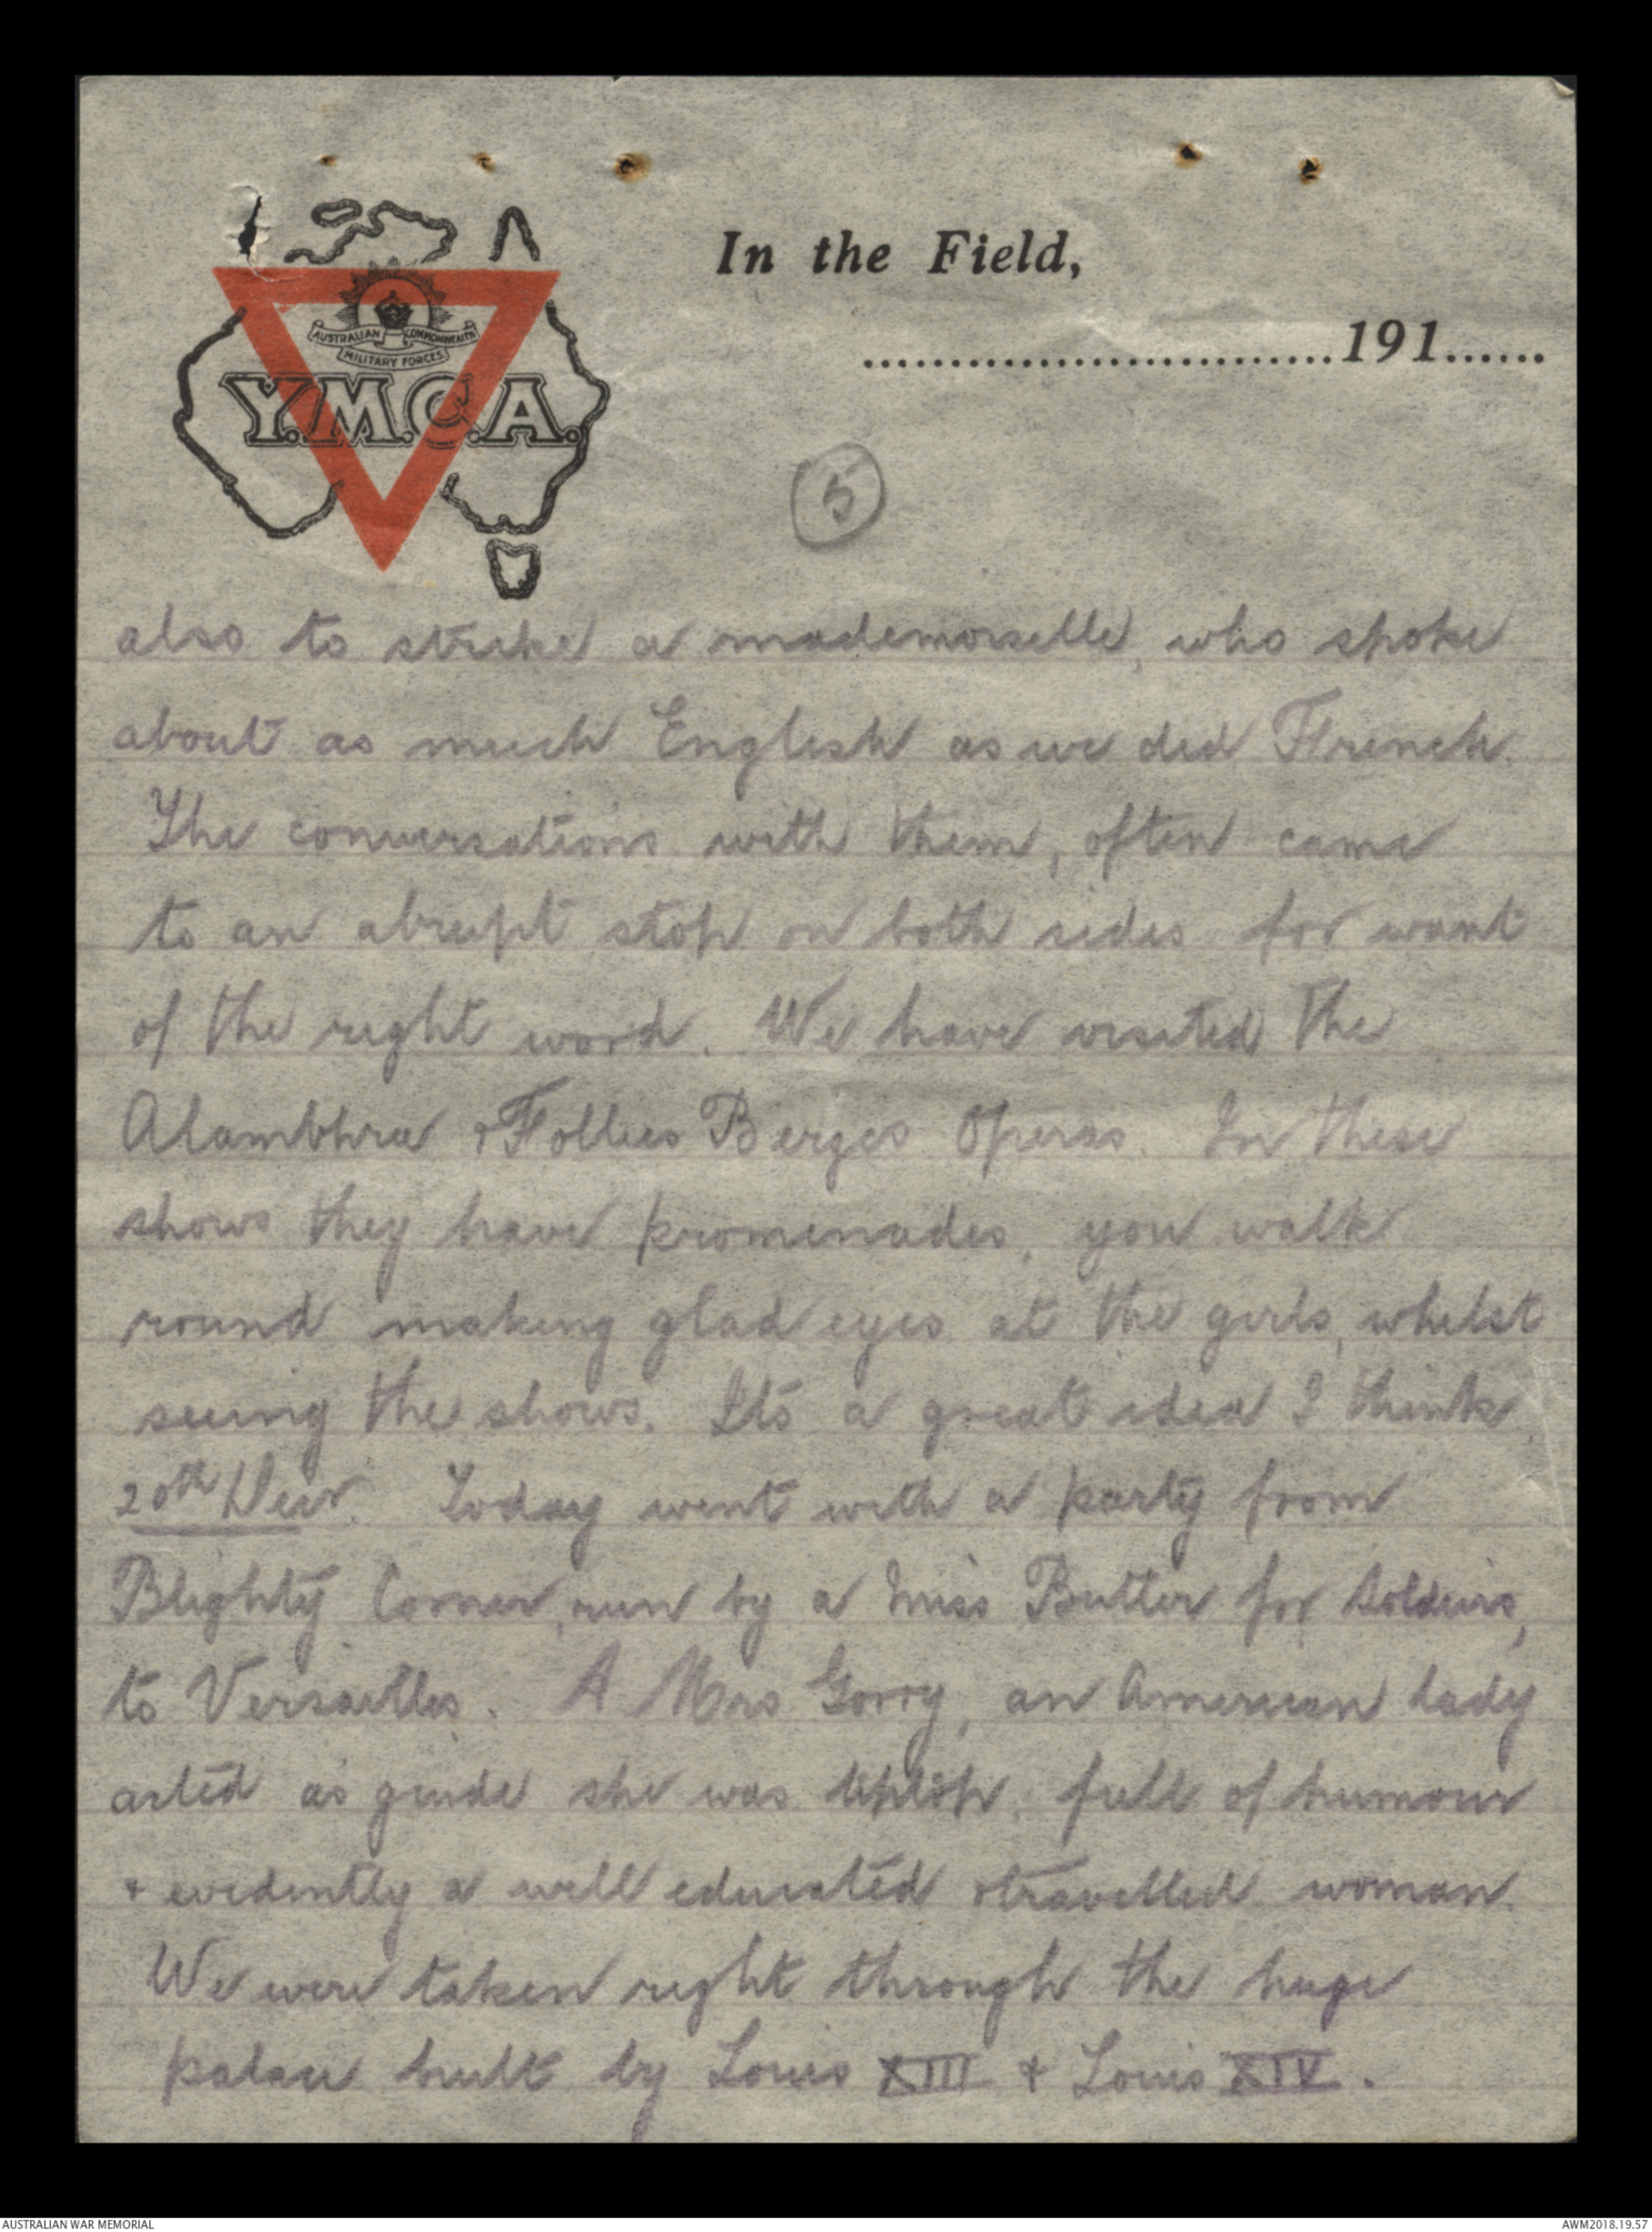 In the Field,
...........................191......
AUSTRALIAN COMMONWEALTH
MILITARY FORCES
Y.M.C.A.
5
also to strike a mademoiselle, who spoke
about as much English as we did French.
The conversations with them, often came
to an abrupt stop on both sides for want
of the right word. We have visited the
Alambhra & Follies Berges Operas. In these
shows they have promenades, you walk
round making glad eyes at the girls, whilst
seeing the shows. Its a great idea I think
20th Decr. Today went with a party from
Blighty Corner, run by a Miss Butler for Soldiers,
to Versailles. A Mrs Gorry, an American lady
acted as guide she was tiptop, full of humour
& evidently a well educated & travelled woman.
We were taken right through the huge
palace built by Louis XIII & Louis XIV.
AUSTRALIAN WAR MEMORIAL
AWM2018.19.57